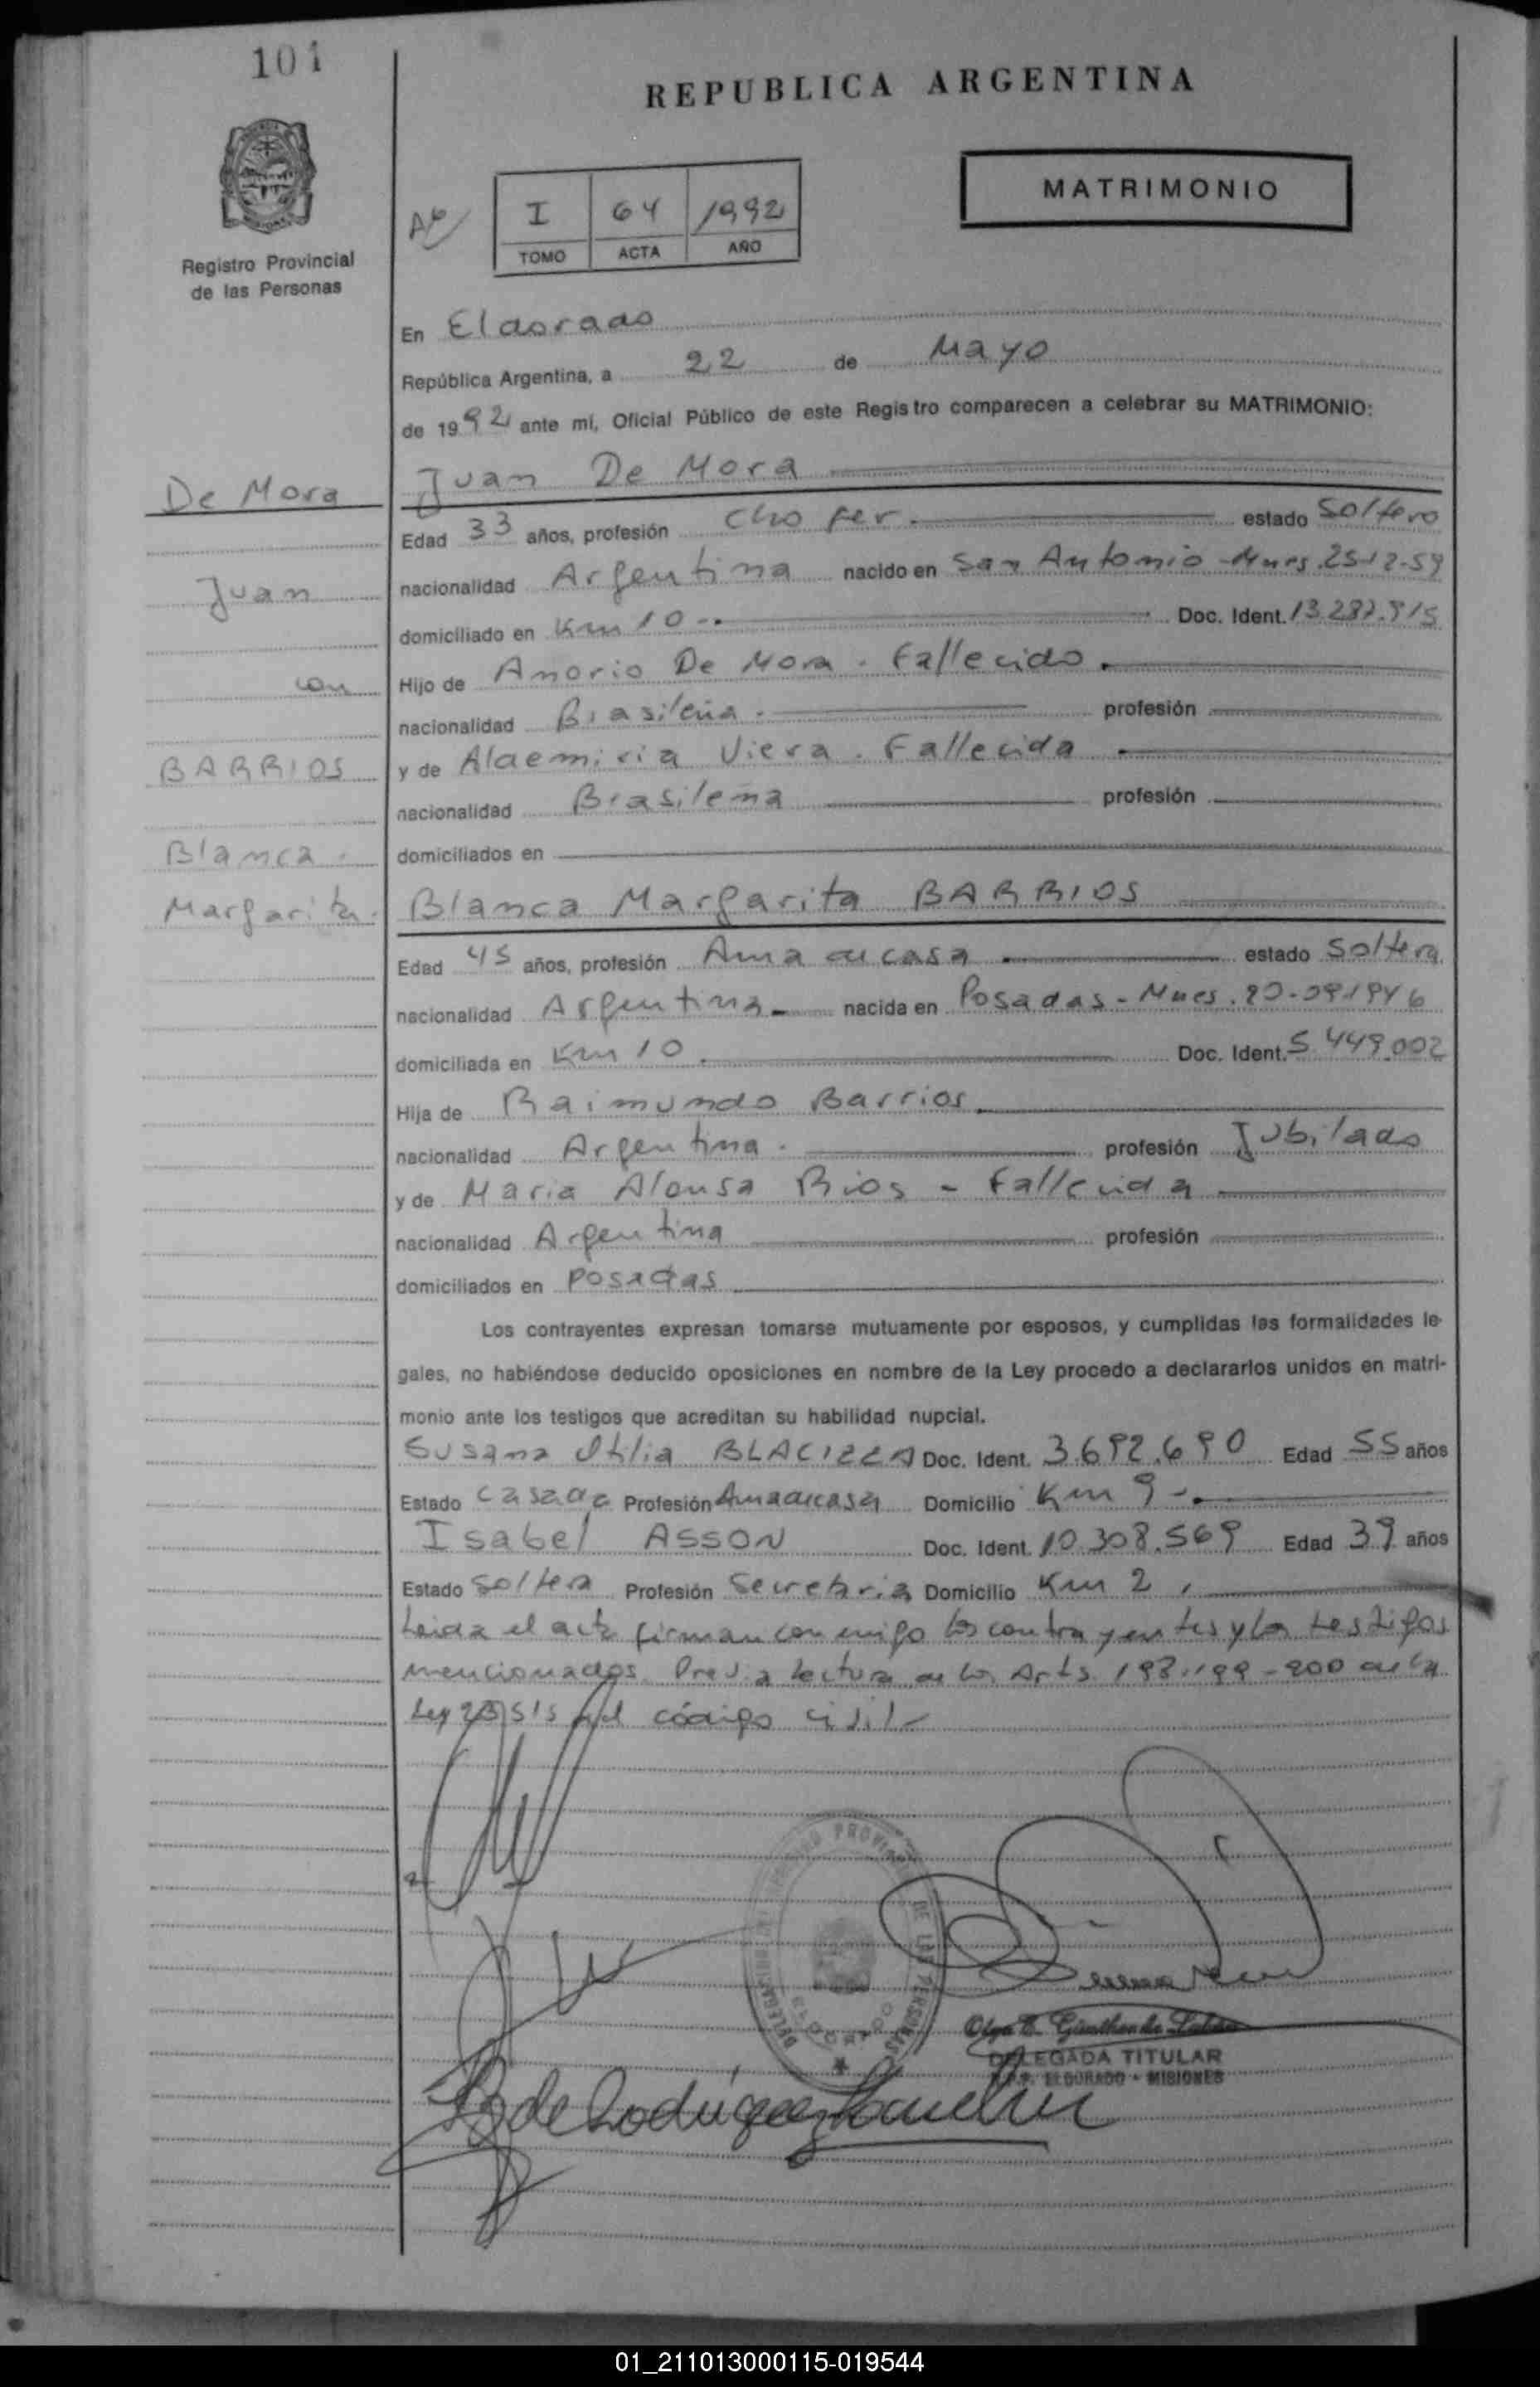 101
REPUBLICA ARGENTINA
MATRIMONIO
I 64 1992
TOMO ACTA AÑO
Registro Provincial
de las Personas
En Eldorado
República Argentina, a 22 de Mayo
de 1992 ante mi, Oficial Público de este Registro comparecen a celebrar su MATRIMONIO:
De Mora
Juan De Mora
Edad 33 años, profesión Chofer estado Soltero
Juan
nacionalidad Argentina nacido en San Antonio Mnes. 25-12-59
domiciliado en Km 10 Doc. Ident.
con
Hijo de Anorio De Mora. Fallecido
nacionalidad Brasileña profesión
BARRIOS
y de Aldemiria Viera. Fallecida
nacionalidad Brasilena profesión
Blanca
domiciliados en
Margarita
Blanca Margarita BARRIOS
Edad 45 años, profesión Ama de casa estado Soltera
nacionalidad Argentina nacida en Posadas - Mnes.
domiciliada en Km 10 Doc. Ident. 5.449.002
Hija de Raimundo Barrios
nacionalidad Argentina profesión Jubilado
y de Maria Alonsa Rios - Fallecida
nacionalidad Argentina profesión
domiciliados en Posadas
Los contrayentes expresan tomarse mutuamente por esposos, y cumplidas las formalidades le-
gales, no habiéndose deducido oposiciones en nombre de la Ley procedo a declararlos unidos en matri-
monio ante los testigos que acreditan su habilidad nupcial.
Susana Otilia Doc. Ident. 3.692.690 Edad 55 años
Estado Casada Profesión Ama de casa Domicilio Km 9
Isabel ASSON Doc. Ident. 10.308.569 Edad 39 años
Estado Soltera Profesión Secretaria Domicilio Km 2
Leida el acta firman conmigo los contrayentes y los testigos
mencionados. Previa lectura de los Arts. 198-199-200 de la
Ley 23515 del código civil
DELEGADA TITULAR
R.P.P. ELDORADO - MISIONES
01_211013000115-019544